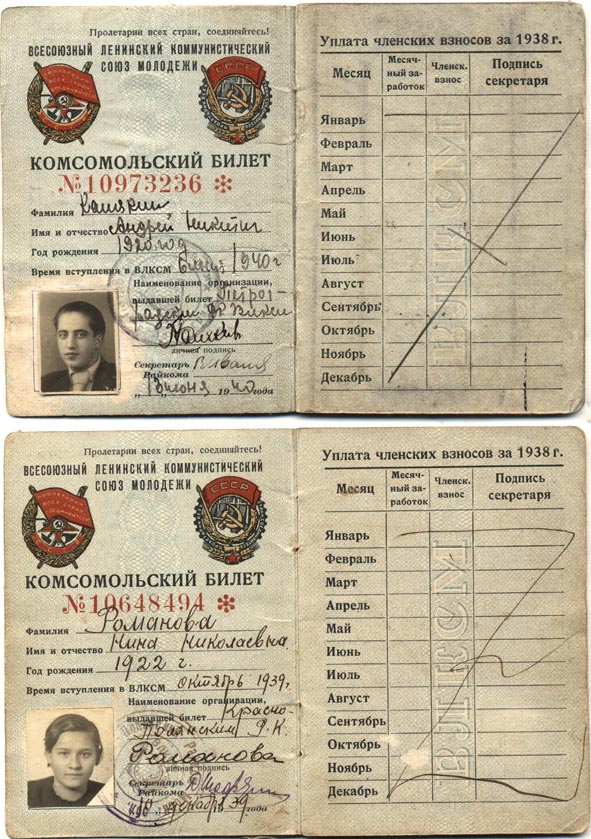 Пролетарии всех стран, соединяйтесь!
ВСЕСОЮЗНЫЙ ЛЕНИНСКИЙ КОММУНИСТИЧЕСКИЙ
СОЮЗ МОЛОДЕЖИ
СССР
КОМСОМОЛЬСКИЙ БИЛЕТ
№10973236 *
Фамилия
Имя и отчество Андрей Никитич
Год рождения 1920 год
Время вступления в ВЛКСМ 1940 г
Наименование организации,
выдавшей билет Петрог-
личная подпись
Секретарь
Райкома
июня 1940 года
Уплата членских взносов за 1938 г.
Месяц
Месяч-
ный за-
работок
Членск.
взнос
Подпись
секретаря
Январь
Февраль
Март
Апрель
Май
Июнь
Июль
Август
Сентябрь
Октябрь
Ноябрь
Декабрь
ВЛКСМ
Пролетарии всех стран, соединяйтесь!
ВСЕСОЮЗНЫЙ ЛЕНИНСКИЙ КОММУНИСТИЧЕСКИЙ
СОЮЗ МОЛОДЕЖИ
СССР
КОМСОМОЛЬСКИЙ БИЛЕТ
№10648494 *
Фамилия Романова
Имя и отчество Нина Николаевна
Год рождения 1922 г.
Время вступления в ВЛКСМ октябрь 1939 г.
Наименование организации,
выдавшей билет Красно-
Полянским Р.К.
Романова
личная подпись
Секретарь
Райкома
"10" декабря 1939 года
Уплата членских взносов за 1938 г.
Месяц
Месяч-
ный за-
работок
Членск.
взнос
Подпись
секретаря
Январь
Февраль
Март
Апрель
Май
Июнь
Июль
Август
Сентябрь
Октябрь
Ноябрь
Декабрь
ВЛКСМ